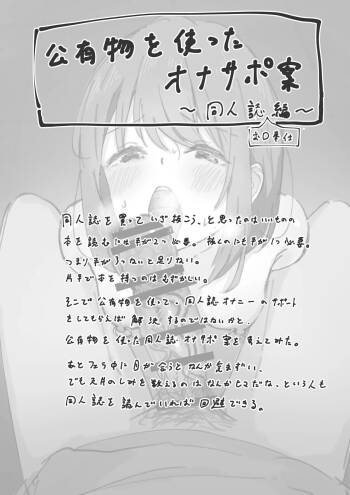 公有物を使った
オナサポ案
〜同人誌編〜
お〇奉仕
同人誌を買っていざ抜こう、と思ったのはいいものの
本を読むには手が2つ必要。抜くのにも手が1つ必要。
つまり手が3つないと足りない。
片手で本を持つのはむずかしい。
そこで公有物を使って、同人誌オナニーのサポート
をしてもらえば解決するのではないかと、
公有物を使った同人誌オナサポ案を考えてみた。
あとフェラ中に目が合うとなんか気まずい、
でも天井のしみを数えるのはなんかヒマだな、という人も
同人誌を読んでいれば回避できる。